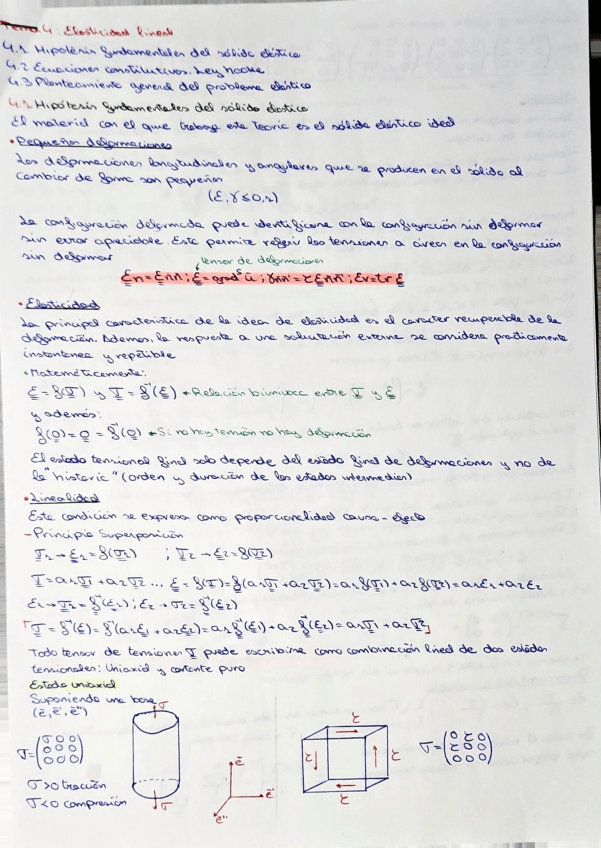 Tema 4: Elasticidad lineal
4.1 Hipótesis fundamentales del sólido elástico
4.2 Ecuaciones constitutivas. Ley Hooke
4.3 Planteamiento general del problema elástico
4.1 Hipótesis fundamentales del sólido elástico
El material con el que trabaja esta teoria es el sólido elástico ideal
• Pequeñas deformaciones
Las deformaciones longitudinales y angulares que se producen en el sólido al
cambiar de forma son pequeñas
La configuración deformada puede identificarse con la configuración sin deformar
sin error apreciable. Esto permite referir las tensiones a áreas en la configuración
sin deformar
tensor de deformaciones
• Elasticidad
La principal característica de la idea de elasticidad es el caracter recuperable de la
deformación. Ademas, la respuesta a una solicitación externa se considera practicamente
instantanea y repetible
• Matemáticamente:
ε = f(σ) y σ = f⁻¹(ε) → Relación biunivoca entre σ y ε
y además:
f(0) = 0 = f⁻¹(0) → Si no hay tensión no hay deformación
El estado tensional final solo depende del estado final de deformaciones y no de
la "historia" (orden y duración de los estados intermedios)
• Linealidad
Esta condición se expresa como proporcionalidad causa - efecto
- Principio Superposición
σ1 → ε1 = f(σ1) ; σ2 → ε2 = f(σ2)
σ = a1σ1 + a2σ2 ... ε = f(σ) = f(a1σ1 + a2σ2) = a1f(σ1) + a2f(σ2) = a1ε1 + a2ε2
ε1 → σ1 = f⁻¹(ε1) ; ε2 → σ2 = f⁻¹(ε2)
[σ = f⁻¹(ε) = f⁻¹(a1ε1 + a2ε2) = a1f⁻¹(ε1) + a2f⁻¹(ε2) = a1σ1 + a2σ2]
Todo tensor de tensiones σ puede escribirse como combinación lineal de dos estados
tensionales: Uniaxial y cortante puro
Estado uniaxial
Suponiendo una base
(e, e', e'')
σ = (σ 0 0
0 0 0
0 0 0)
σ>0 tracción
σ<0 compresión
σ
σ
e
e'
e''
τ
τ
τ
τ
σ = (0 τ 0
τ 0 0
0 0 0)